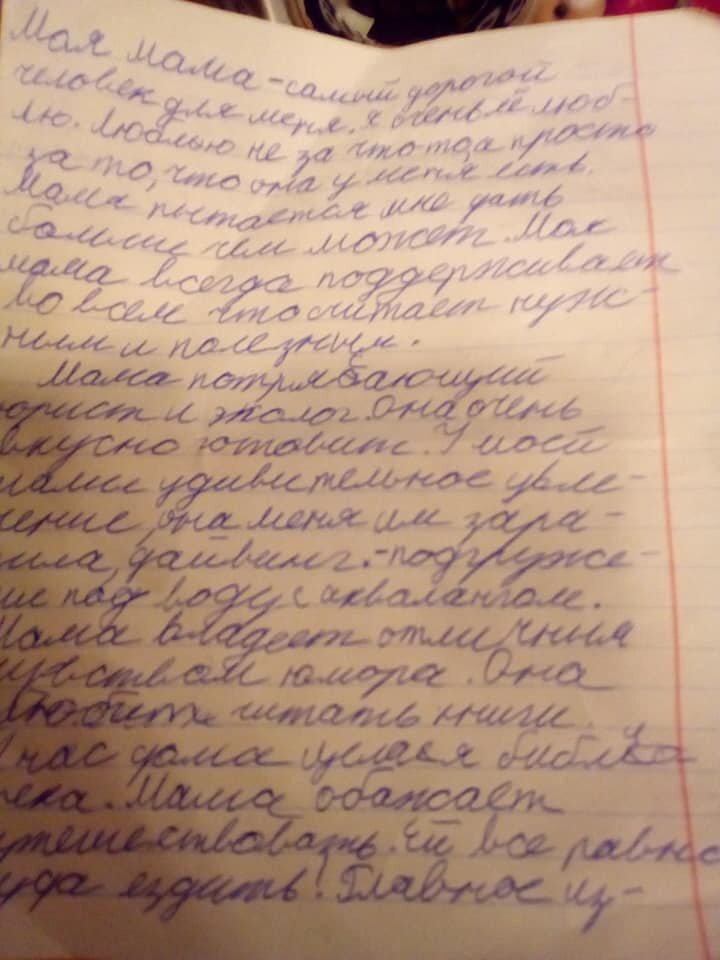 Мая мама - самый дорогой
человек для меня. Я очень её люб-
лю. Люблю не за что то, а просто
за то, что она у меня есть.
Мама пытается мне дать
больше чем может. Моя
мама всегда поддерживает
во всем что считает нуж-
ным и полезным.
Мама потрябающий
юрист и эколог. Она очень
вкусно готовит. У моей
мамы удивительное увле-
чение, она меня им зара-
зила, дайвинг. - подгруже-
ие под воду с аквалангом.
Мама владеет отличным
чувством юмора. Она
любит читать книги.
У нас дома целася библио
ека. Мама обажает
утешествовать. Ей все равно
уда ездить! Главное из-